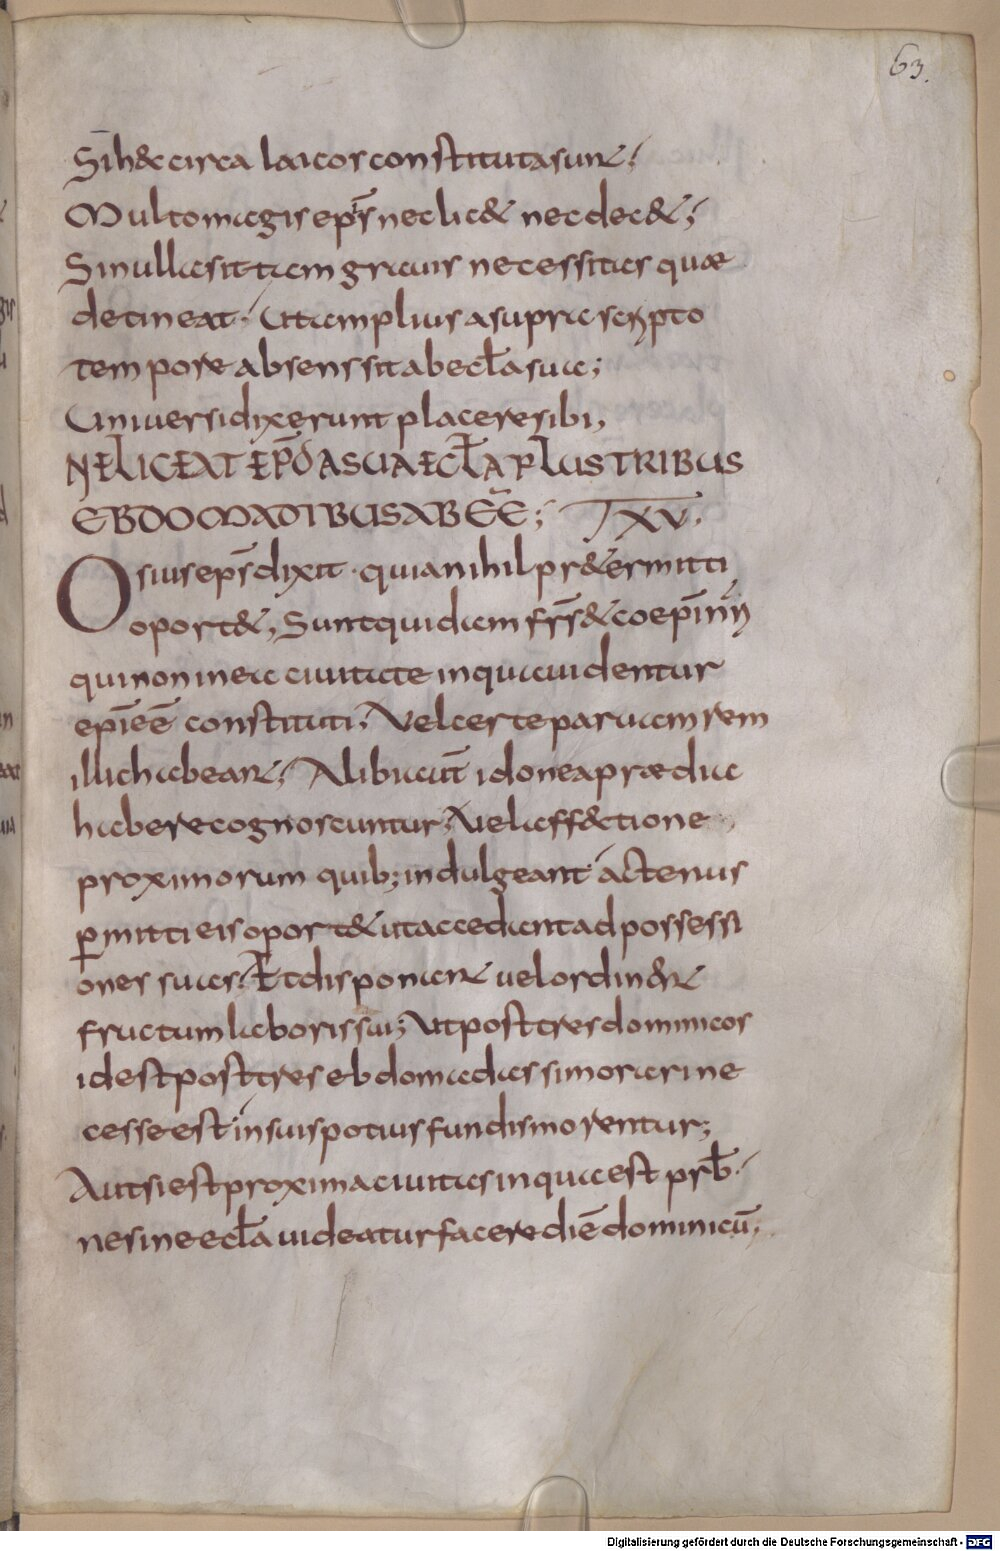 63.
Si h& circa laicos constituta sunt;
Multo magis ep̄s nec lic& nec dec&;
Si nulla sit tam grauis necessitas quæ
detineat; Ut amplius a supra scripto
tempore absens sit ab eccl̄a sua;
Uniuersi dixerunt placere sibi,
NE LICEAT EP̄O A SUA ECL̄A PLUS TRIBUS
EBDOMADIBUS ABEE͞; T XV.
Osius ep̄s dixit · quia nihil pr&ermitti
oport&; Sunt quidam fr̄s & coep̄i nr̄i
qui non in ea ciuitate in qua uidentur
ep̄i eē constituti; Vel certe paruam rem
illic habeant; Alibi aut̄ idonea prædia
habere cognoscuntur; Vel aff&tione
proximorum quib; indulgeant actenus
p̄mitti eis oport& ut accedant ad possessi
ones suas; Et disponant uel ordinent
fructum laboris sui; Ut post tres dominicos
id est post tres ebdomadas si morari ne
cesse est in suis potius fundis morentur;
Aut si est proxima ciuitas in qua est prb̄;
ne sine eccl̄a uideatur facere diē dominicū;
Digitalisierung gefördert durch die Deutsche Forschungsgemeinschaft - DFG